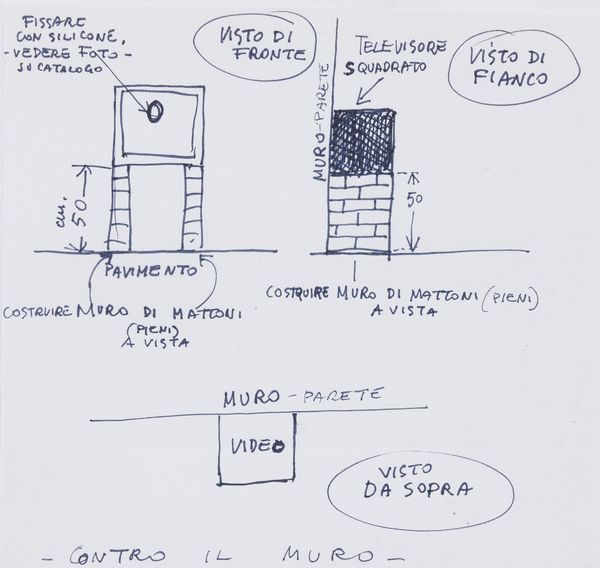 FISSARE
CON SILICONE,
- VEDERE FOTO -
SU CATALOGO
VISTO DI
FRONTE
cm.
50
PAVIMENTO
COSTRUIRE MURO DI MATTONI
(PIENI)
A VISTA
MURO-PARETE
TELEVISORE
SQUADRATO
VISTO DI
FIANCO
50
COSTRUIRE MURO DI MATTONI (PIENI)
A VISTA
MURO - PARETE
VIDEO
VISTO
DA SOPRA
- CONTRO IL MURO -